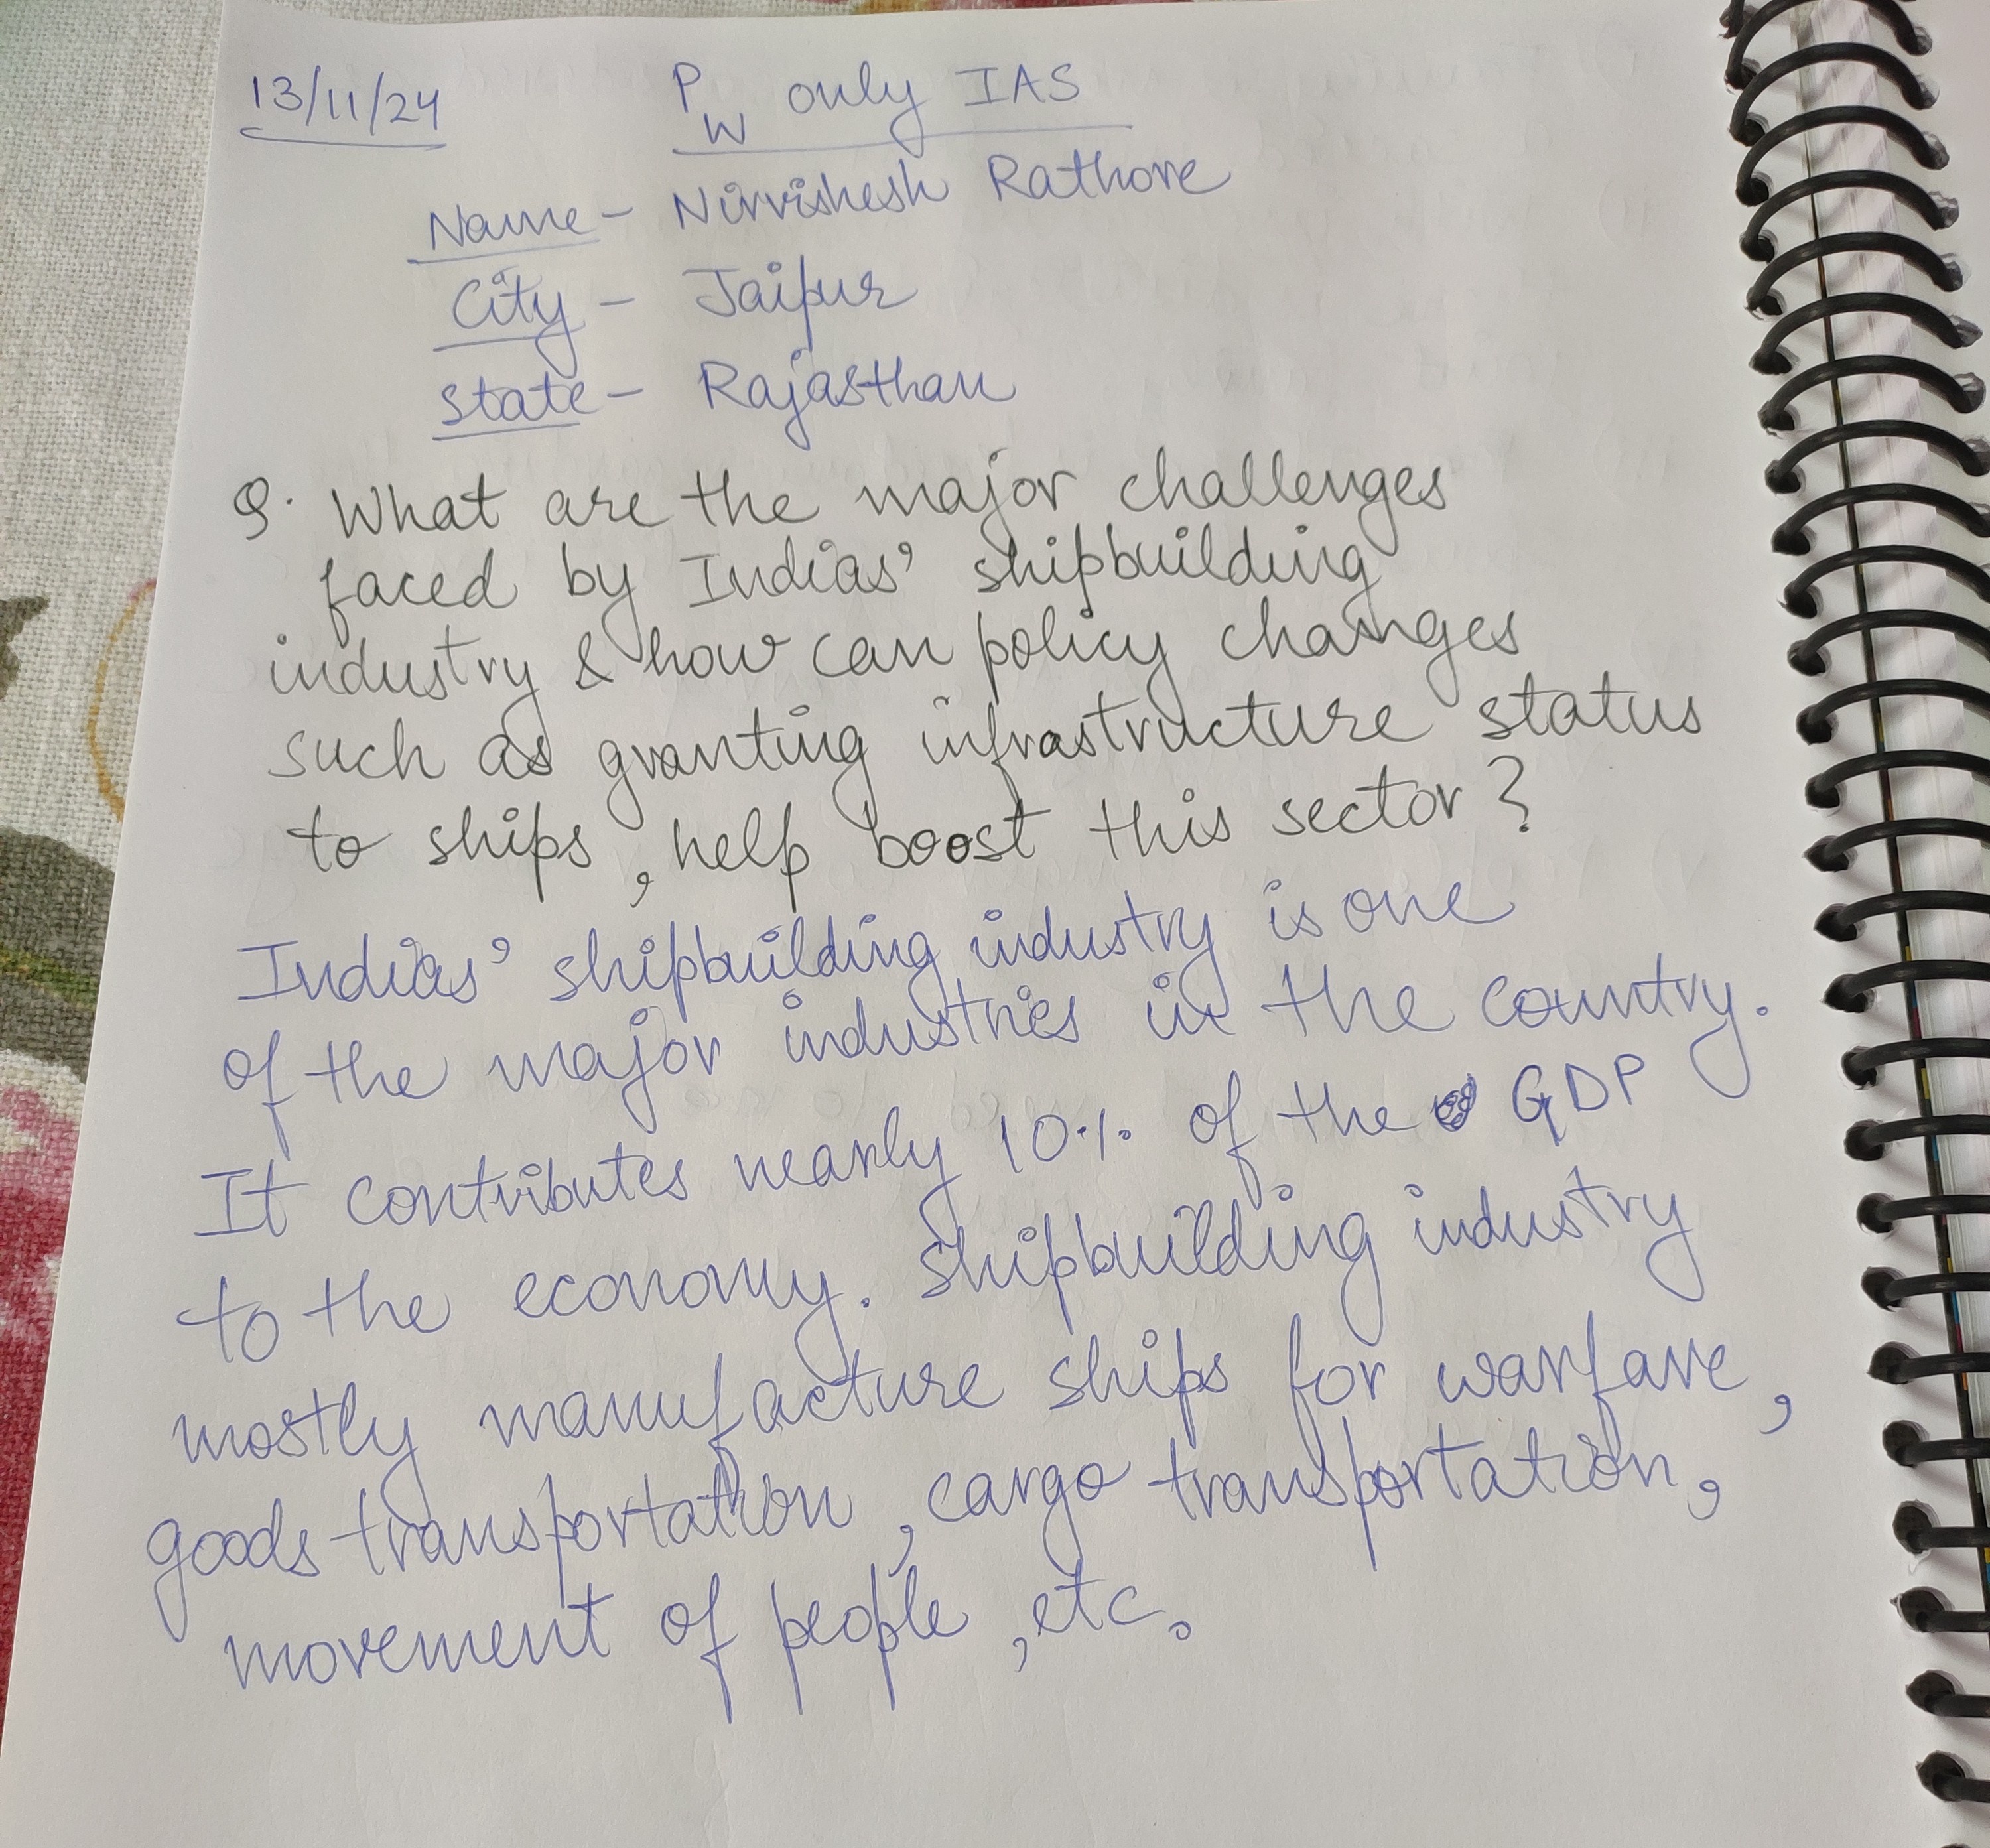 13/11/24
PW only IAS
Name - Nirvishesh Rathore
City - Jaipur
State - Rajasthan
Q. What are the major challenges
faced by Indias' shipbuilding
industry & how can policy changes
such as granting infrastructure status
to ships, help boost this sector?
Indias' shipbuilding industry is one
of the major industries in the country.
It contributes nearly 10% of the GDP
to the economy. Shipbuilding industry
mostly manufacture ships for warfare,
goods transportation, cargo transportation,
movement of people, etc.